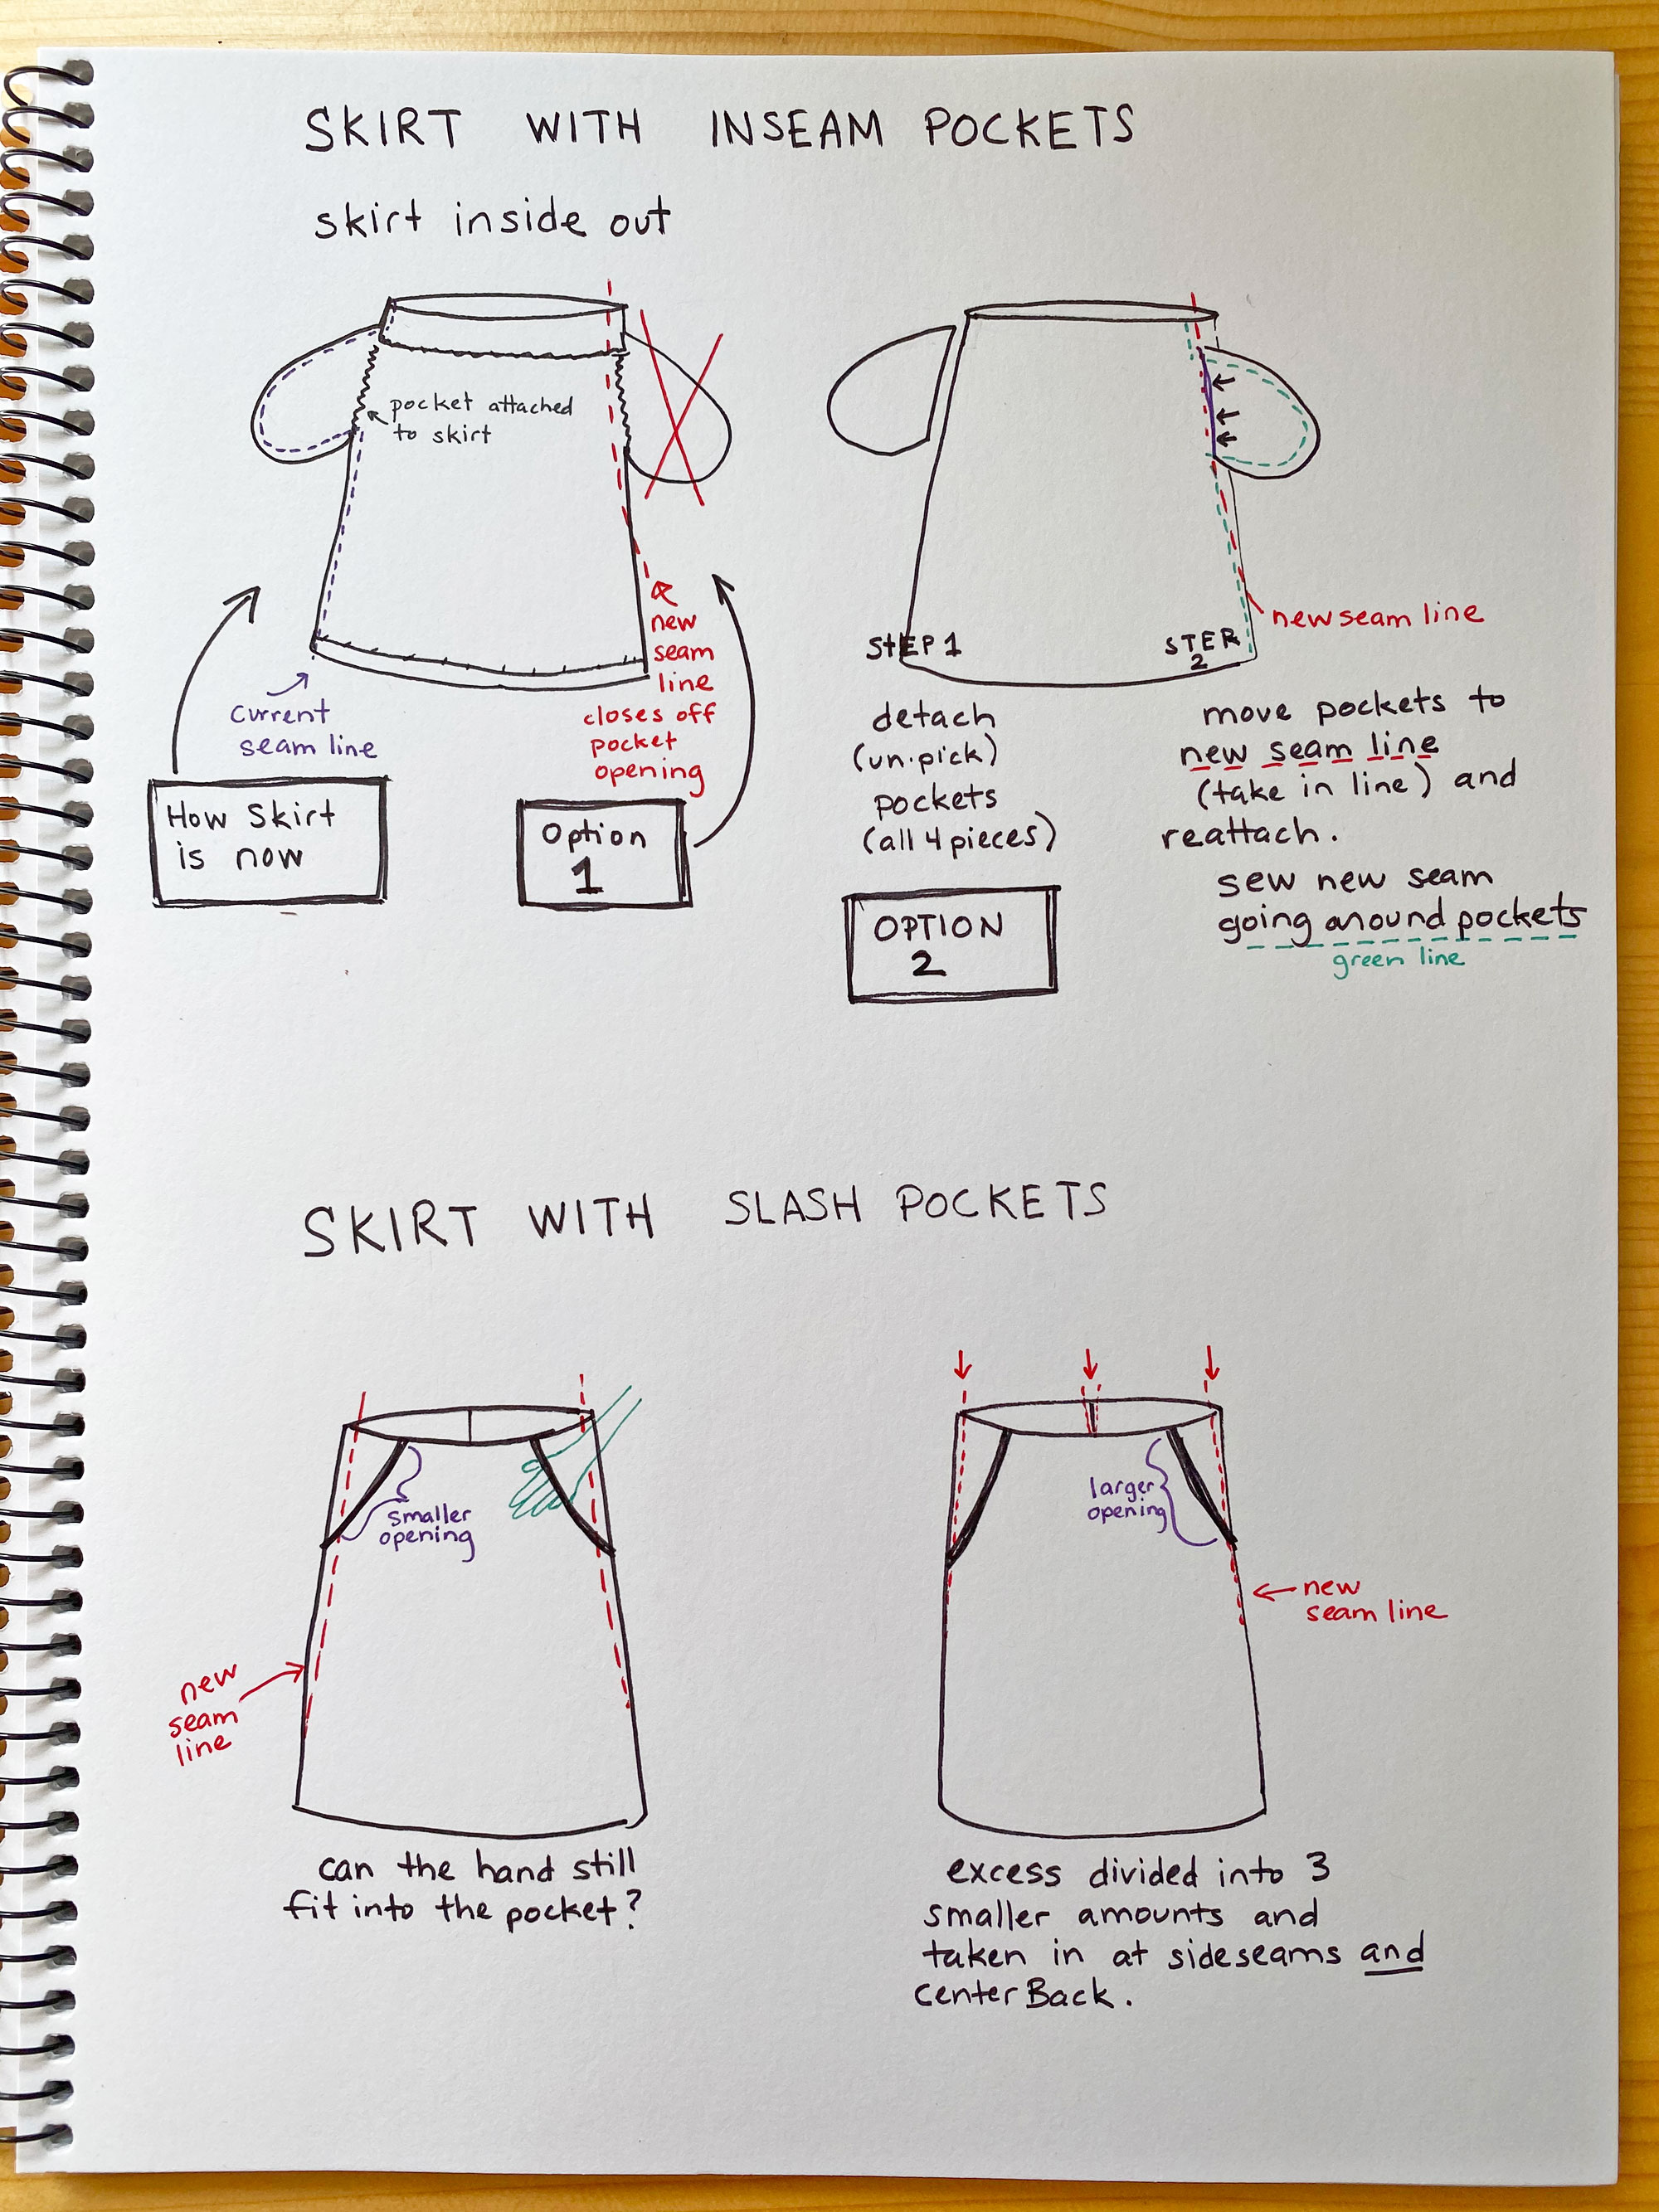 SKIRT WITH INSEAM POCKETS
skirt inside out
pocket attached
to skirt
current
seam line
new
seam
line
closes off
pocket
opening
How Skirt
is now
Option
1
STEP 1
detach
(un.pick)
pockets
(all 4 pieces)
OPTION
2
STEP
2
new seam line
move pockets to
new seam line
(take in line) and
reattach.
sew new seam
going around pockets
green line
SKIRT WITH SLASH POCKETS
smaller
opening
new
seam
line
can the hand still
fit into the pocket?
larger
opening
new
seam line
excess divided into 3
smaller amounts and
taken in at sideseams and
center Back.